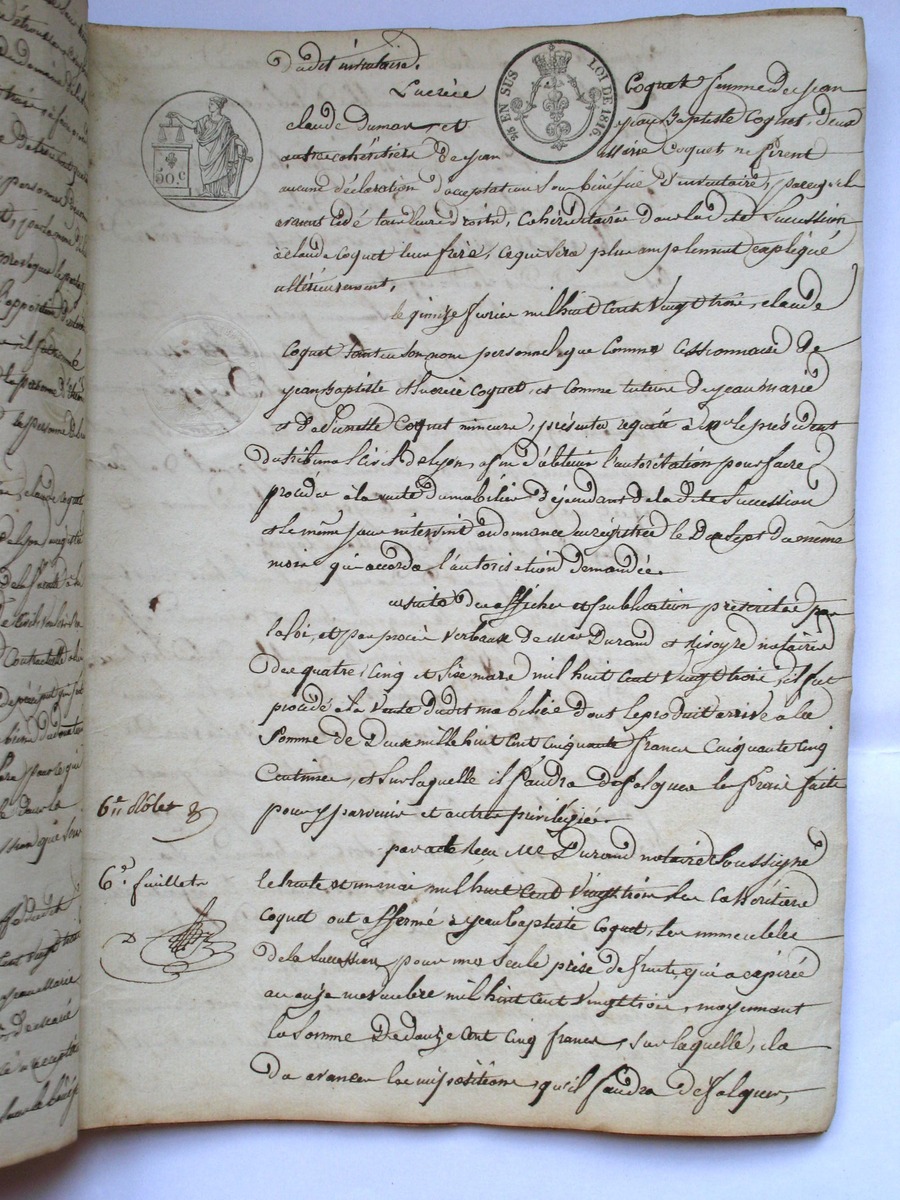 dudit inventaire.
Lucrèce Coquet femme de jean
claude dumas, et jean Baptiste Coquet, deux
autres cohéritiers de jean Marie Coquet, ne firent
aucune déclaration d'acceptation sous bénéfice d'inventaire, parcequ'ils
avaient cédé tous leurs droits, cohéréditaires dans la dite Succession
à claude Coquet leur frère, ce qui sera plus amplement expliqué
ultérieurement.
le quinze février mil huit Cent Vingt trois, claude
Coquet tant en son nom personnel, que comme Cessionnaire de
jean Baptiste et Lucrèce Coquet, et comme tuteur de jean Marie
et de Pierrette Coquet mineurs, présenta requête à Mr. le président
du tribunal Civil de Lyon, afin d'obtenir l'autorisation pour faire
procéder à la vente du mobilier dépendant de la dite Succession
et le même jour intervint ordonnance enregistrée le Dix Sept du même
mois qui accorda l'autorisation demandée.
ensuite des affiches et publication prescrites par
la loi, et par procès Verbaux de Mes Durand et notaires
des quatre, Cinq et Six mars mil huit Cent Vingt trois, il fut
procédé à la vente dudit mobilier dont le produit arrive à la
Somme de Deux mille huit Cent Cinquante francs Cinquante Cinq
Centimes, et Sur laquelle il faudra défalquer les frais faits
pour y parvenir et autres privilégiés.
par acte reçu Me. Durand notaire Soussigné
le trente et un mai mil huit Cent Vingt trois les cohéritiers
Coquet ont affermé à jean Baptiste Coquet, les immeubles
de la Succession pour une Seule prise de fruits qui a expiré
au onze novembre mil huit Cent Vingt trois, moyennant
la Somme De douze Cent Cinq francs, Sur laquelle, il a
du avancer les impositions, qu'il faudra défalquer,
6e. Rôle
6e. feuillet
50.C
5/5 EN SUS
LOI DE 1816.